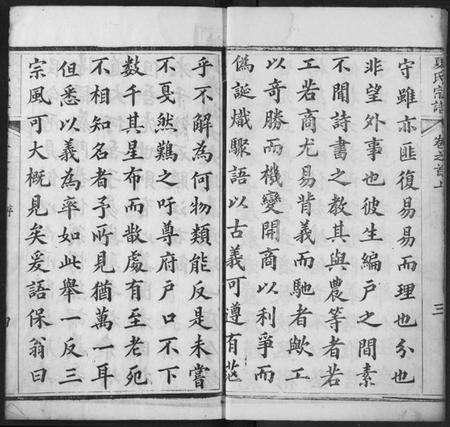 守雖亦匪復易易而理也分也
非望外事也彼生編戶之間素
不聞詩書之教其與農等者若
工若商尤易背義而馳者歟工
以奇勝而機變開商以利爭而
偽誕熾驟語以古義可遵有茫
乎不解為何物類能反是未嘗
不戛然難之吁尊府戶口不下
數千其星布而散處有至老死
不相知名者予所見猶萬一耳
但悉以義為率如此舉一反三
宗風可大概見矣爰語保翁曰
氏宗譜
卷之首上
三